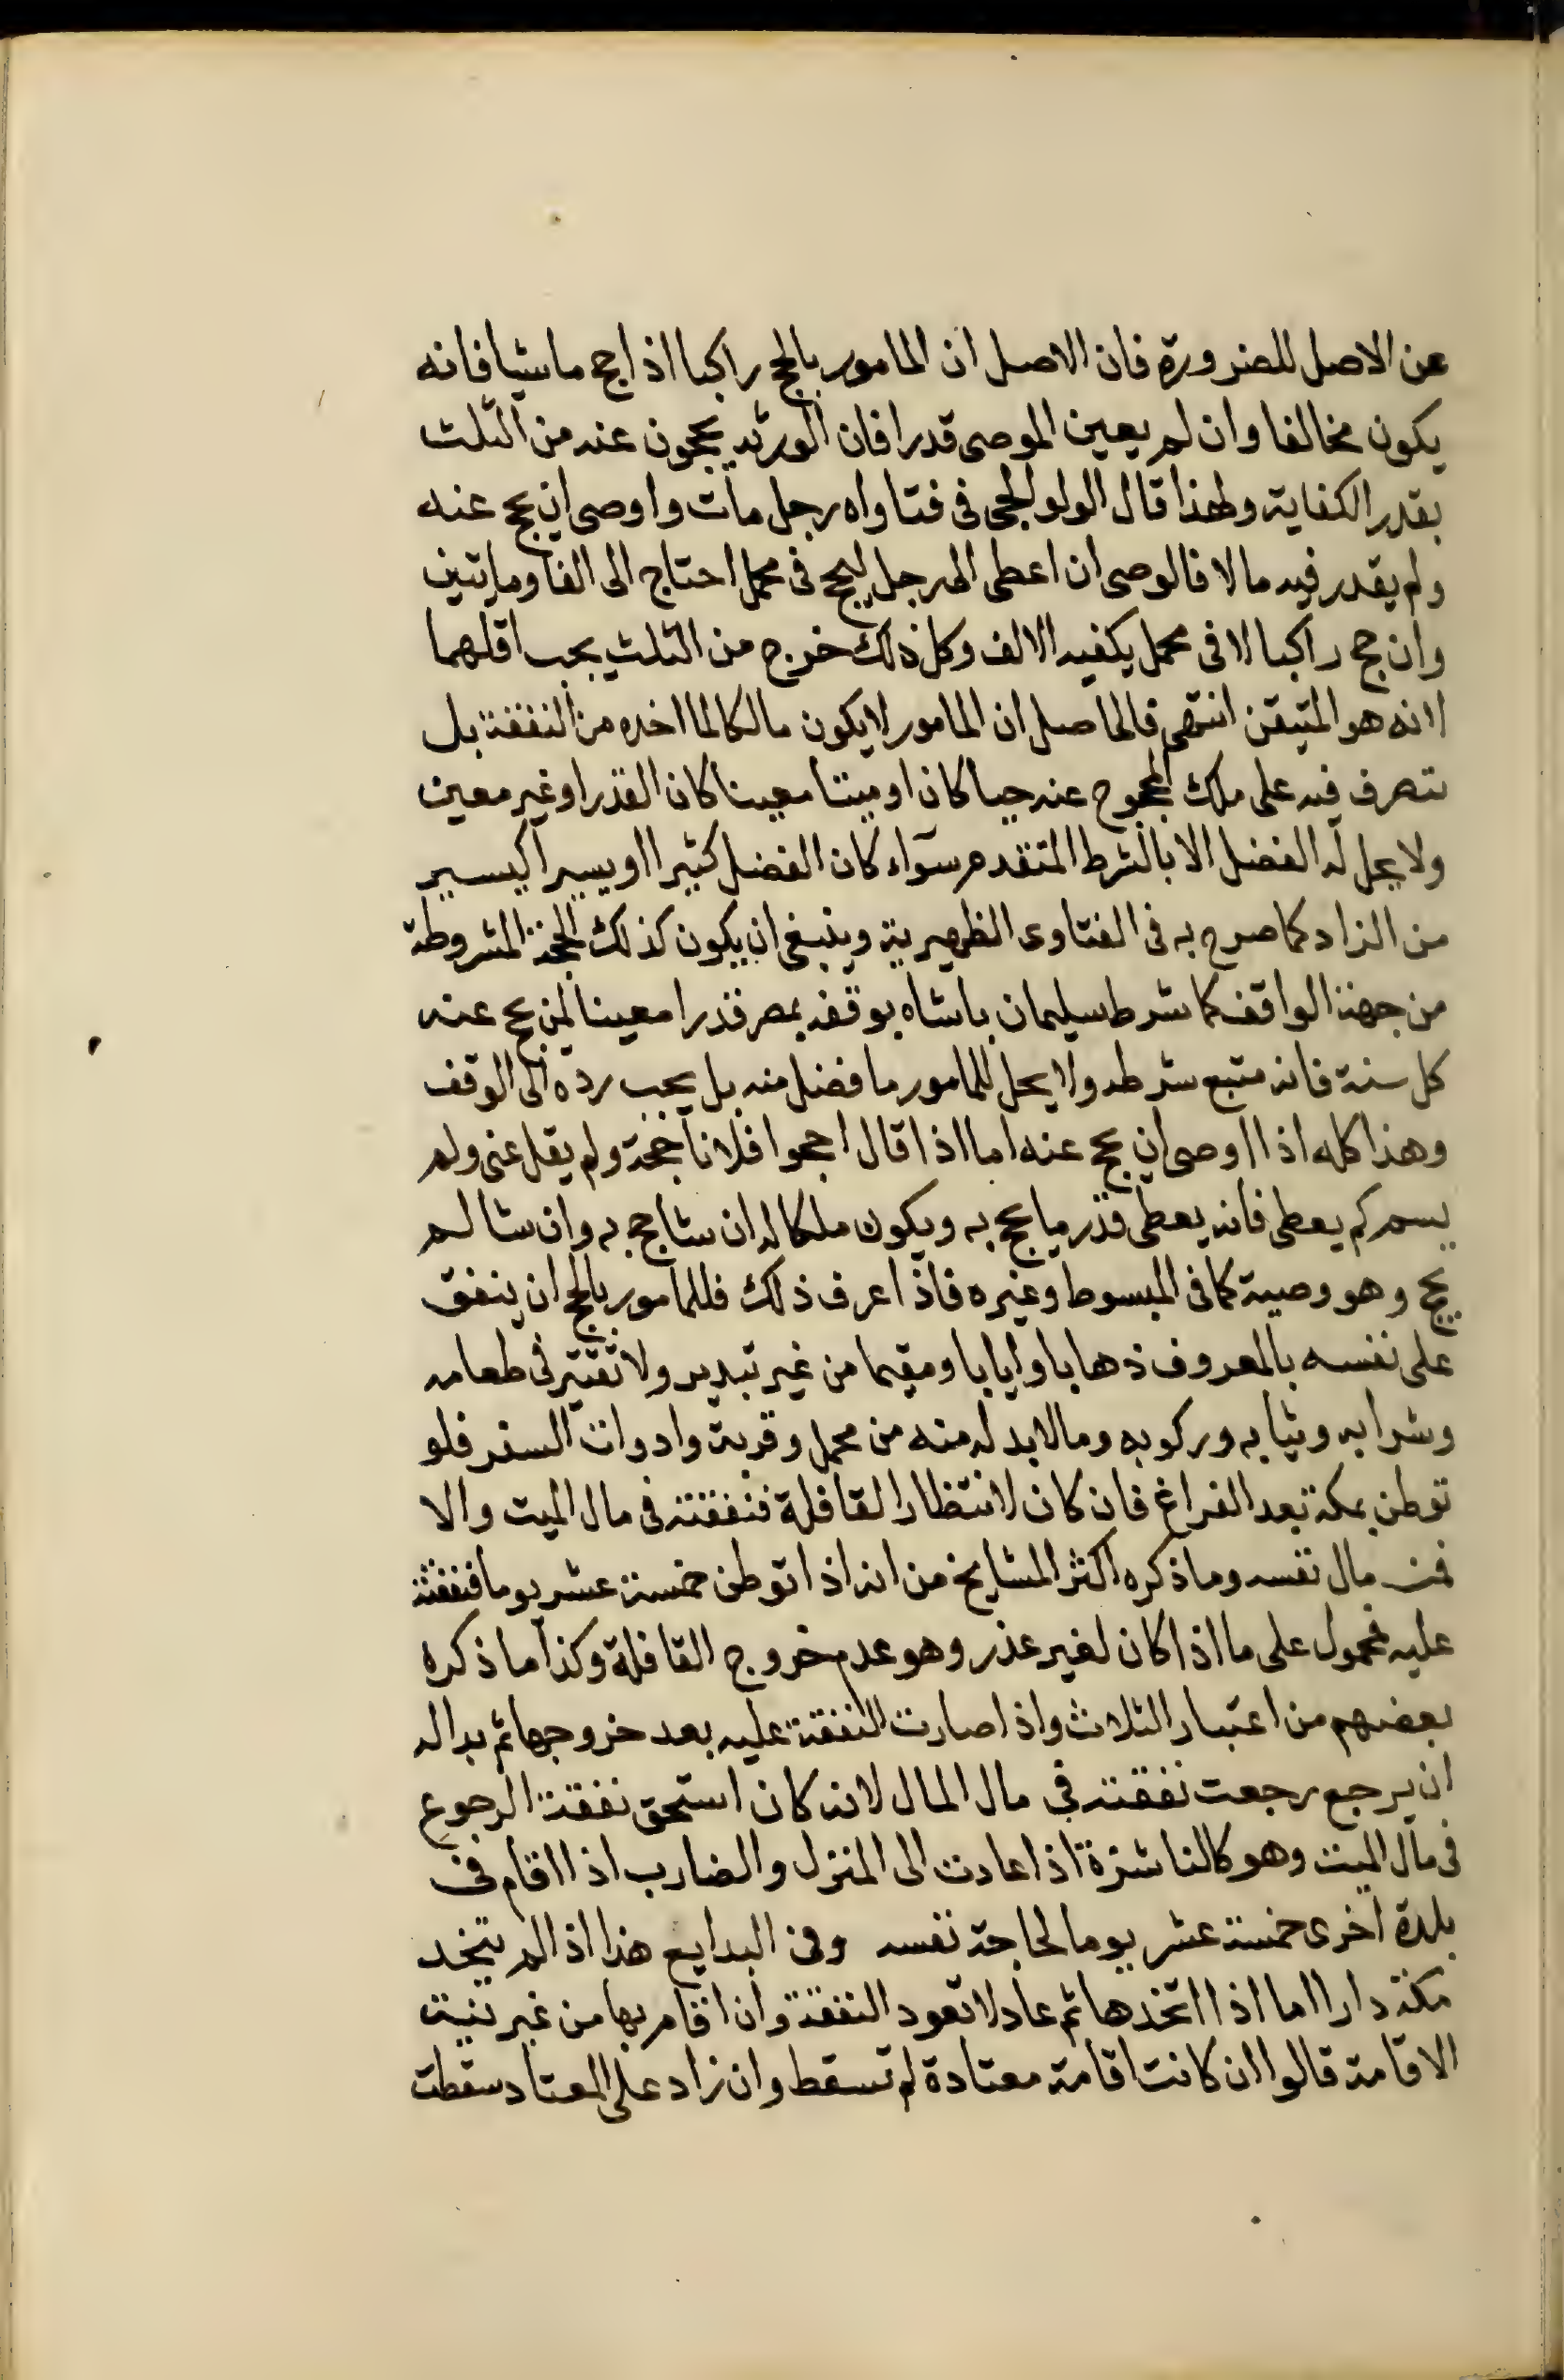 عن الاصل للضرورة فان الاصل ان المامور بالحج راكبا اذا حج ماشيا فانه
يكون مخالفا وان لم يعين الموصى قدرا فان الورثه يحجون عنه من الثلث
بقدر الكفاية ولهذا قال الولوالجى فى فتاواه رجل مات واوصى ان يحج عنه
ولم يقدر فيه مالا فالوصى ان اعطى الى رجل ليحج فى محمل احتاج الى الف ومايتين
وان حج راكبا لا فى محمل يكفيه الالف وكل ذلك خرج من الثلث يجب اقلهما
لانه هو المتيقن انتهى فالحاصل ان المامور لا يكون مالكا لما اخذه من النفقة بل
تتصرف فيه على ملك المحجوج عنه حيا كان او ميتا معينا كان القدر او غير معين
ولا يحل له الفضل الا بالشرط المتقدم سوآء كان الفضل كثيرا او يسيرا كيسير
من الزاد كما صرح به فى الفتاوى الظهيرية وينبغى ان يكون كذلك الحجة المشروطة
من جهة الواقف كما شرط سليمان باشاه بوقفه بمصر قدرا معينا لمن يحج عنه
كل سنة فانه متبع شرطه ولا يحل للمامور ما فضل منه بل يجب رده الى الوقف
وهذا كله اذا اوصى ان يحج عنه اما اذا قال احجوا فلانا حجة ولم يقل عنى ولم
يسم كم يعطى فانه يعطى قدر ما يحج به ويكون ملكا له ان شا حج به وان شا لم
يحج وهو وصية كما فى المبسوط وغيره فاذا عرف ذلك فللمامور بالحج ان ينفق
على نفسه بالمعروف ذهابا وايابا ومقيما من غير تبدير ولا تقتير فى طعامه
وشرابه وثيابه وركوبه وما لا بد له منه من محمل وقربة وادوات السفر فلو
توطن بمكة بعد الفراغ فان كان لانتظار القافلة فنفقته فى مال الميت والا
فمن مال نفسه وما ذكره اكثر المشايخ من انه اذا توطن خمسة عشر يوما فنفقته
عليه فمحمول على ما اذا كان لغير عذر وهو عدم خروج القافلة وكذا ما ذكره
بعضهم من اعتبار الثلاث واذا صارت النفقة عليه بعد خروجها ثم بدا له
ان يرجع رجعت نفقته في مال المال لانه كان استحق نفقة الرجوع
فى مال الميت وهو كالناشزة اذا عادت الى المنزل والضارب اذا اقام فى
بلدة اخرى خمسة عشر يوما لحاجة نفسه وفى البدايع هذا اذا لم يتخد
مكة دارا اما اذا اتخدها ثم عاد لا تعود النفقة وان اقام بها من غير نية
الاقامة قالوا ان كانت اقامة معتادة لم تسقط وان زاد على المعتاد سقطت